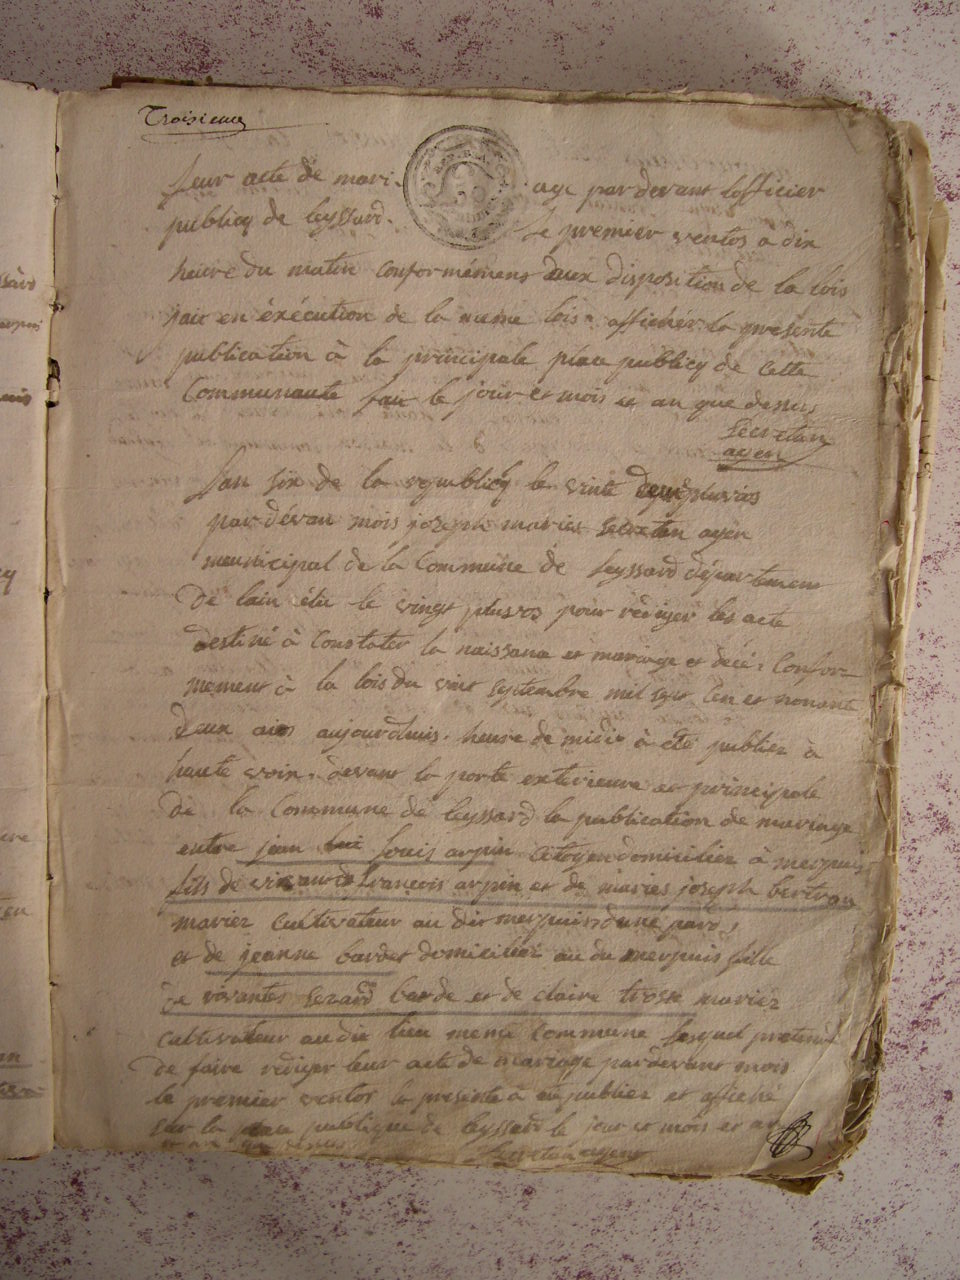 Troisieme
leur acte de mari- age par devant lofficier
publicq de leyssard. Le premier ventos a dix
heure du matin conformémens aux disposition de la lois
fait en éxécution de la meme lois affichér la présente
publication à la principale place publicq de cette
Communauté fait le jour et mois et an que dessus
Secretan
agen
Lan six de la republicq le vint deux pluvies
par dévan mois joseph maries Secretan agen
meunicipal de la Commune de leyssard département
de lain élu le vingt pluvos pour rédiger les acte
destiné à Constater la naissance et mariage et décé. Confor-
mement à la lois du vint septembre mil sept Cen et nonante
Deux ains aujourdhuis. heure de midis à été publiez à
haute voix. devant la porte exterieure et principale
de la Commune de leyssard la publication de mariage
entre jean louis arpin Citoyen domicilier à merpuis
fils de vivant francois arpin et de maries joseph bertran
mariez cultivateur au dit merpuis dune pard,
et de jeanne bardet domiciliez au du merpuis fille
de vivantes barde et de claire mariez
cultivateur au die lieu meme Commune lesquel pretend
de faire rédiger leur acte de mariage par devant mois
le premier ventos la presente à été publiez et affiché
sur la place publique de leyssard le jour et mois et an
et an que dessus Secretan agent